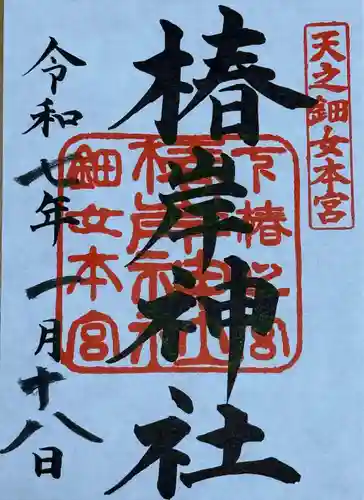 天之細女本宮
椿岸神社
下椿岸宮
椿岸神社
細女本宮
令和七年一月十八日